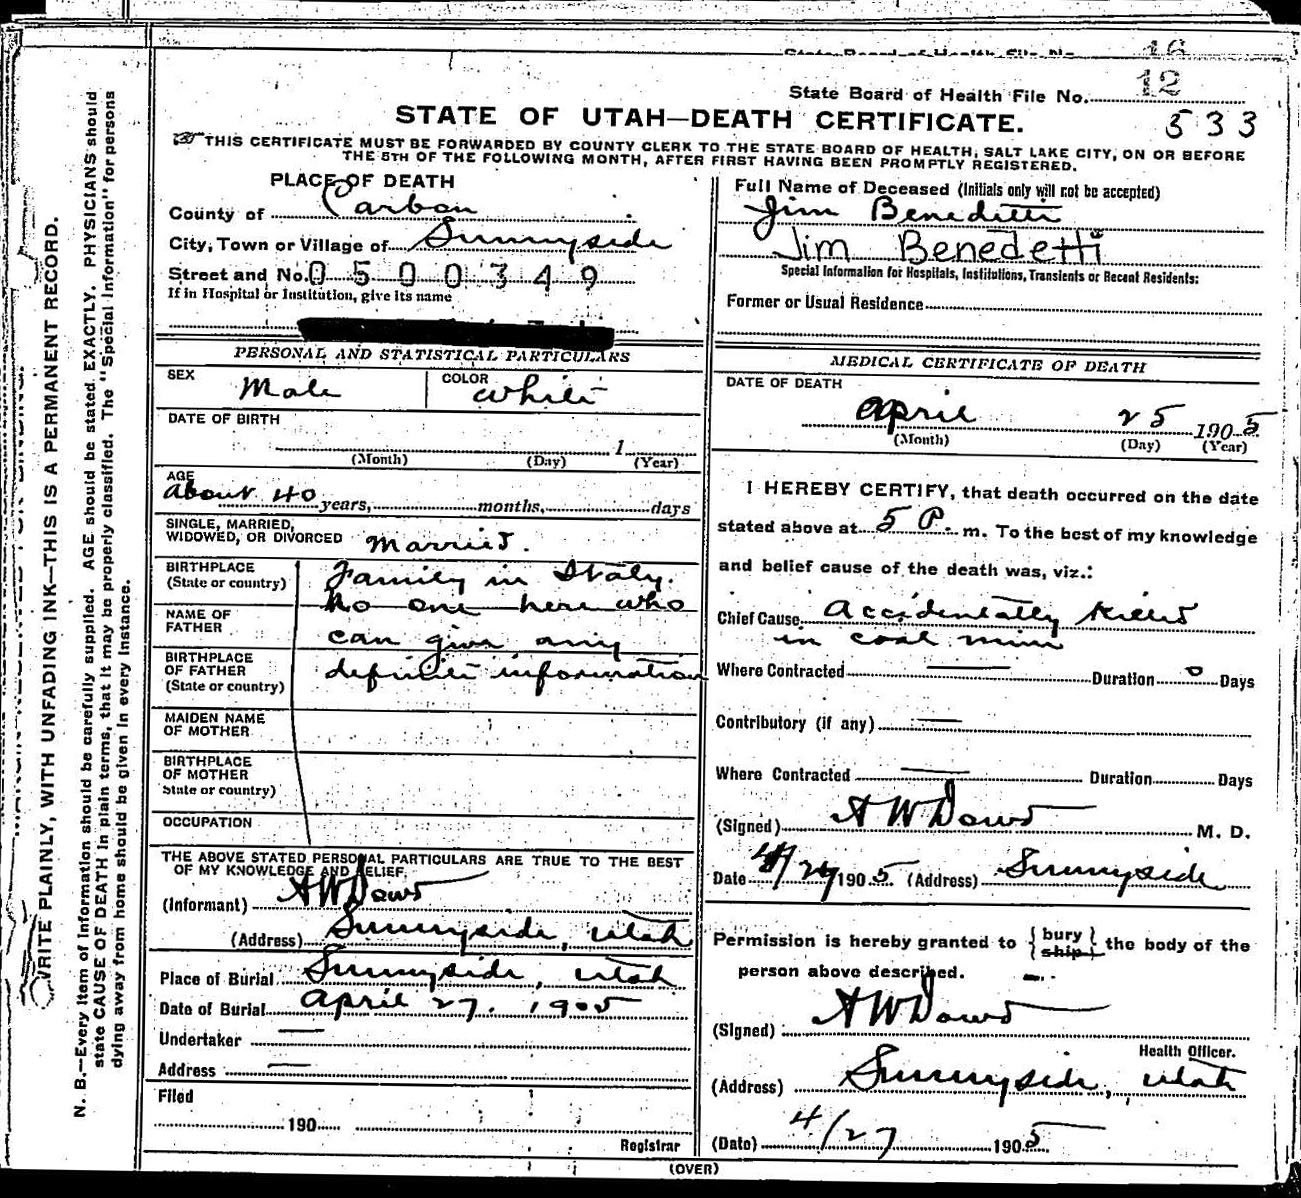 State Board of Health File No. 16
State Board of Health File No. 12
STATE OF UTAH—DEATH CERTIFICATE.
533
THIS CERTIFICATE MUST BE FORWARDED BY COUNTY CLERK TO THE STATE BOARD OF HEALTH, SALT LAKE CITY, ON OR BEFORE
THE 5TH OF THE FOLLOWING MONTH, AFTER FIRST HAVING BEEN PROMPTLY REGISTERED.
PLACE OF DEATH
County of Carbon
City, Town or Village of Sunnyside
Street and No. 0500349
If in Hospital or Institution, give its name
Full Name of Deceased (Initials only will not be accepted)
Jim Beneditti
Jim Benedetti
Special Information for Hospitals, Institutions, Transients or Recent Residents:
Former or Usual Residence
PERSONAL AND STATISTICAL PARTICULARS
SEX Male COLOR White
DATE OF BIRTH
1
(Month) (Day) (Year)
AGE
About 40 years, months, days
SINGLE, MARRIED,
WIDOWED, OR DIVORCED Married.
BIRTHPLACE
(State or country) Family in Italy.
No one here who
NAME OF
FATHER can give any
BIRTHPLACE
OF FATHER definite information
(State or country)
MAIDEN NAME
OF MOTHER
BIRTHPLACE
OF MOTHER
State or country)
OCCUPATION
THE ABOVE STATED PERSONAL PARTICULARS ARE TRUE TO THE BEST
OF MY KNOWLEDGE AND BELIEF.
(Informant) A W Dowd
(Address) Sunnyside, Utah
Place of Burial Sunnyside, Utah
Date of Burial April 27, 1905
Undertaker —
Address —
Filed
190
Registrar
MEDICAL CERTIFICATE OF DEATH
DATE OF DEATH
April 25 1905
(Month) (Day) (Year)
I HEREBY CERTIFY, that death occurred on the date
stated above at 5 P. m. To the best of my knowledge
and belief cause of the death was, viz.:
Chief Cause Accidentally killed
in coal mine
Where Contracted — Duration 0 Days
Contributory (if any) —
Where Contracted — Duration Days
(Signed) A W Dowd M. D.
Date 4/27 1905 (Address) Sunnyside
Permission is hereby granted to {bury ship} the body of the
person above described.
(Signed) A W Dowd
Health Officer.
(Address) Sunnyside, Utah
(Date) 4/27 1905
(OVER)
WRITE PLAINLY, WITH UNFADING INK—THIS IS A PERMANENT RECORD.
N. B.—Every item of information should be carefully supplied. AGE should be stated EXACTLY. PHYSICIANS should
state CAUSE OF DEATH in plain terms, that it may be properly classified. The "Special Information" for persons
dying away from home should be given in every instance.